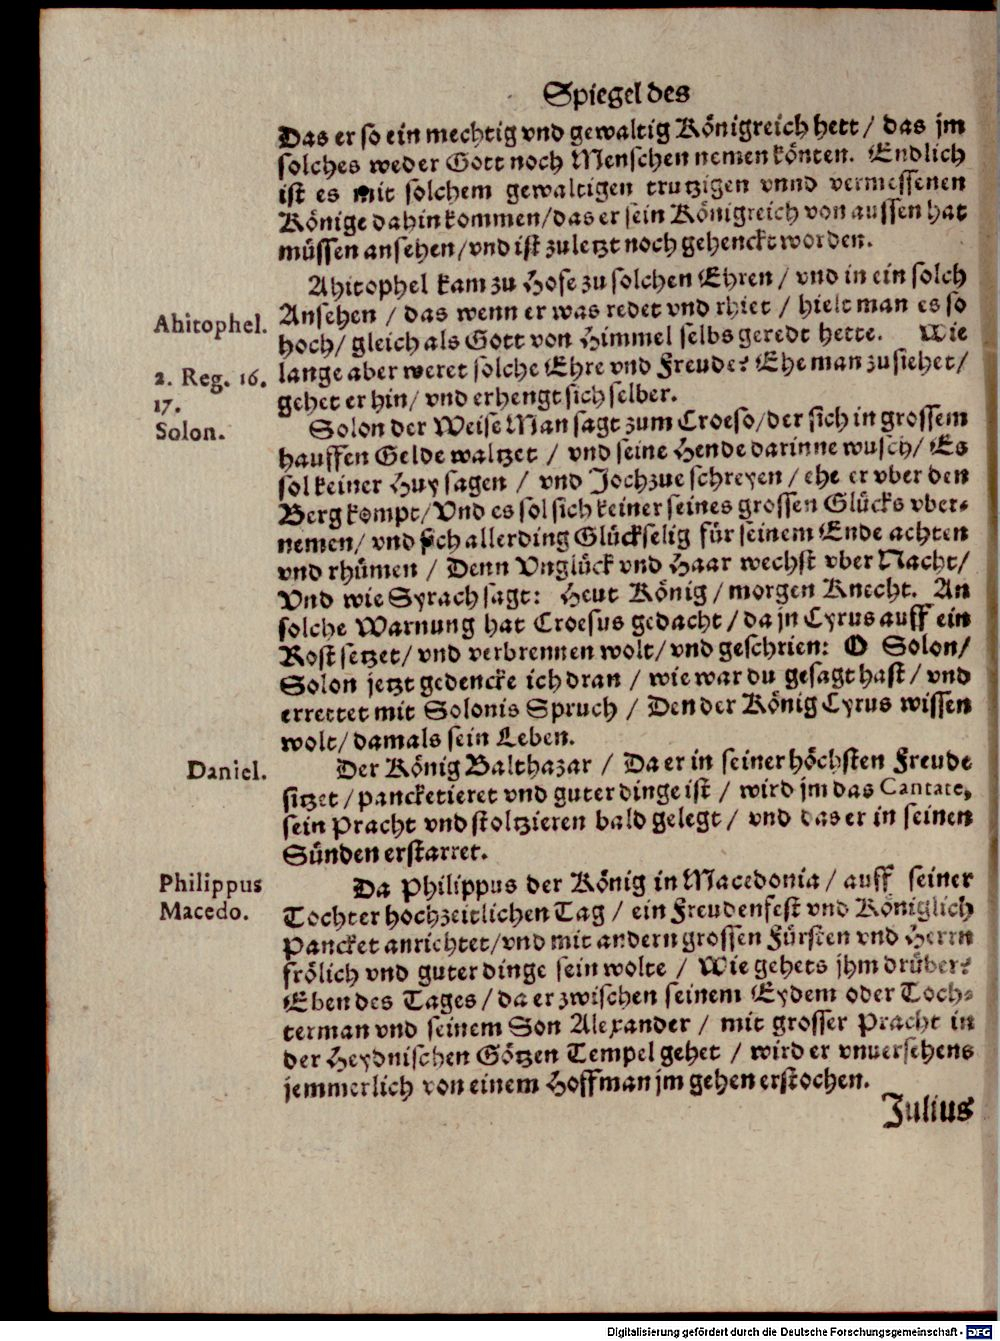 Spiegel des
Das er so ein mechtig vnd gewaltig Königreich hett / das jm
solches weder Gott noch Menschen nemen könten. Endlich
ist es mit solchem gewaltigen trutzigen vnnd vermessenen
Könige dahin kommen/das er sein Königreich von aussen hat
müssen ansehen/vnd ist zuletzt noch gehenckt worden.
Ahitophel.
Ahitophel kam zu Hofe zu solchen Ehren / vnd in ein solch
Ansehen / das wenn er was redet vnd rhiet / hielt man es so
hoch/ gleich als Gott von Himmel selbs geredt hette. Wie
2. Reg. 16.
17.
lange aber weret solche Ehre vnd Freude? Ehe man zusiehet/
gehet er hin/ vnd erhengt sich selber.
Solon.
Solon der Weise Man sagt zum Croeso/der sich in grossem
hauffen Gelde waltzet / vnd seine Hende darinne wusch/ Es
sol keiner Huy sagen / vnd Jochzue schreyen / ehe er vber den
Berg kompt/Vnd es sol sich keiner seines grossen Glücks vber-
nemen/ vnd sich allerding Glückselig für seinem Ende achten
vnd rhümen / Denn Vnglück vnd Haar wechst vber Nacht/
Vnd wie Syrach sagt: Heut König / morgen Knecht. An
solche Warnung hat Croesus gedacht / da jn Cyrus auff ein
Rost setzet/ vnd verbrennen wolt/ vnd geschrien: O Solon/
Solon jetzt gedencke ich dran / wie war du gesagt hast / vnd
errettet mit Solonis Spruch / Den der König Cyrus wissen
wolt/ damals sein Leben.
Daniel.
Der König Balthazar / Da er in seiner höchsten Freude
sitzet / pancketieret vnd guter dinge ist / wird jm das Cantate,
sein Pracht vnd stoltzieren bald gelegt / vnd das er in seinen
Sünden erstarret.
Philippus
Macedo.
Da Philippus der König in Macedonia / auff seiner
Tochter hochzeitlichen Tag / ein Freudenfest vnd Königlich
Pancket anrichtet/vnd mit andern grossen Fürsten vnd Herrn
frölich vnd guter dinge sein wolte / Wie gehets jhm drüber?
Eben des Tages / da er zwischen seinem Eydem oder Toch-
terman vnd seinem Son Alexander / mit grosser Pracht in
der Heydnischen Götzen Tempel gehet / wird er vnuersehens
jemmerlich von einem Hoffman jm gehen erstochen.
Julius
Digitalisierung gefördert durch die Deutsche Forschungsgemeinschaft - DFG